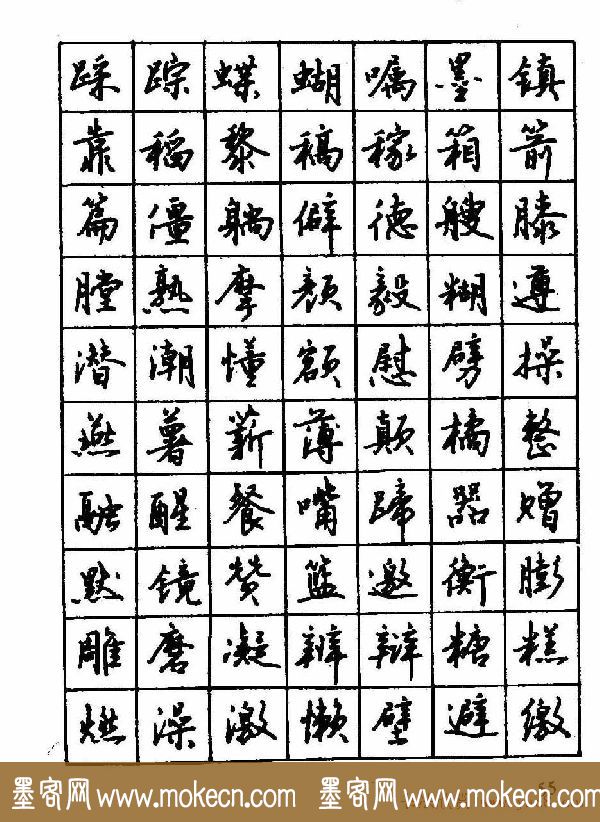 踩踪蝶蝴嘱墨镇
靠稻黎稿稼箱箭
篇僵躺僻德艘膝
膛熟摩颜毅糊遵
潜潮懂额慰劈操
燕薯薪薄颠橘整
融醒餐嘴蹄器赠
默镜赞篮邀衡膨
雕磨凝辨辩糖糕
燃澡激懒壁避缴
墨客网 www.mokecn.com 墨客网 www.mokecn.com